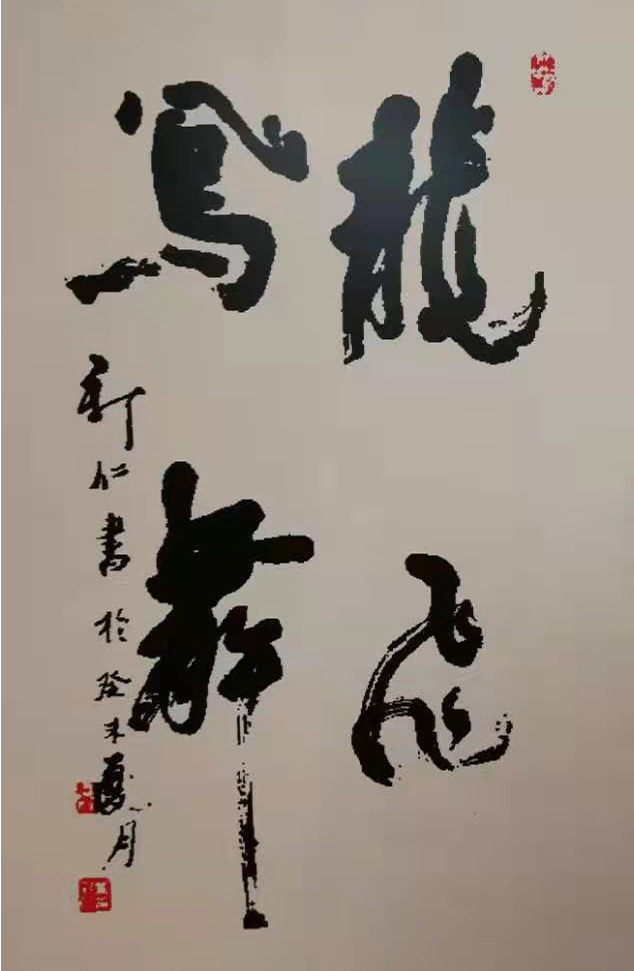 龍飛
鳳舞
新仁書於癸未夏月